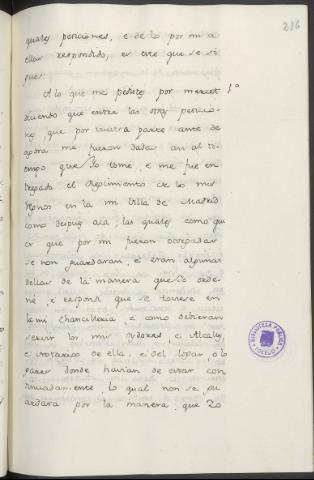 216
quales peticiones, e de lo por mi a
ellas respondido, es este que se si
gue:
A lo que me pedistes por merced 1º
diciendo que entre las otras peticio-
nes que por vuestra parte ante de
agora me fueron dadas asi al ti-
empo que Yo tomé, e me fue en
tregado el Regimiento de los mis
Regnos en la mi Villa de Madrid
como despues acá, las quales como qui
er que por mi fueron otorgadas
se non guardaran, é eran algunas
dellas de la manera que Yo orde-
né, e respondi que se toviese en
la mi Chancilleria e como debieran
servir los mis oydores, e Alcalles,
e notarios de ella, e del lugar, o lo
gares donde havian de estar con
tinuadamente, lo qual non se gu
ardara por la manera, que Yo
BIBLIOTECA PUBLICA
TOLEDO